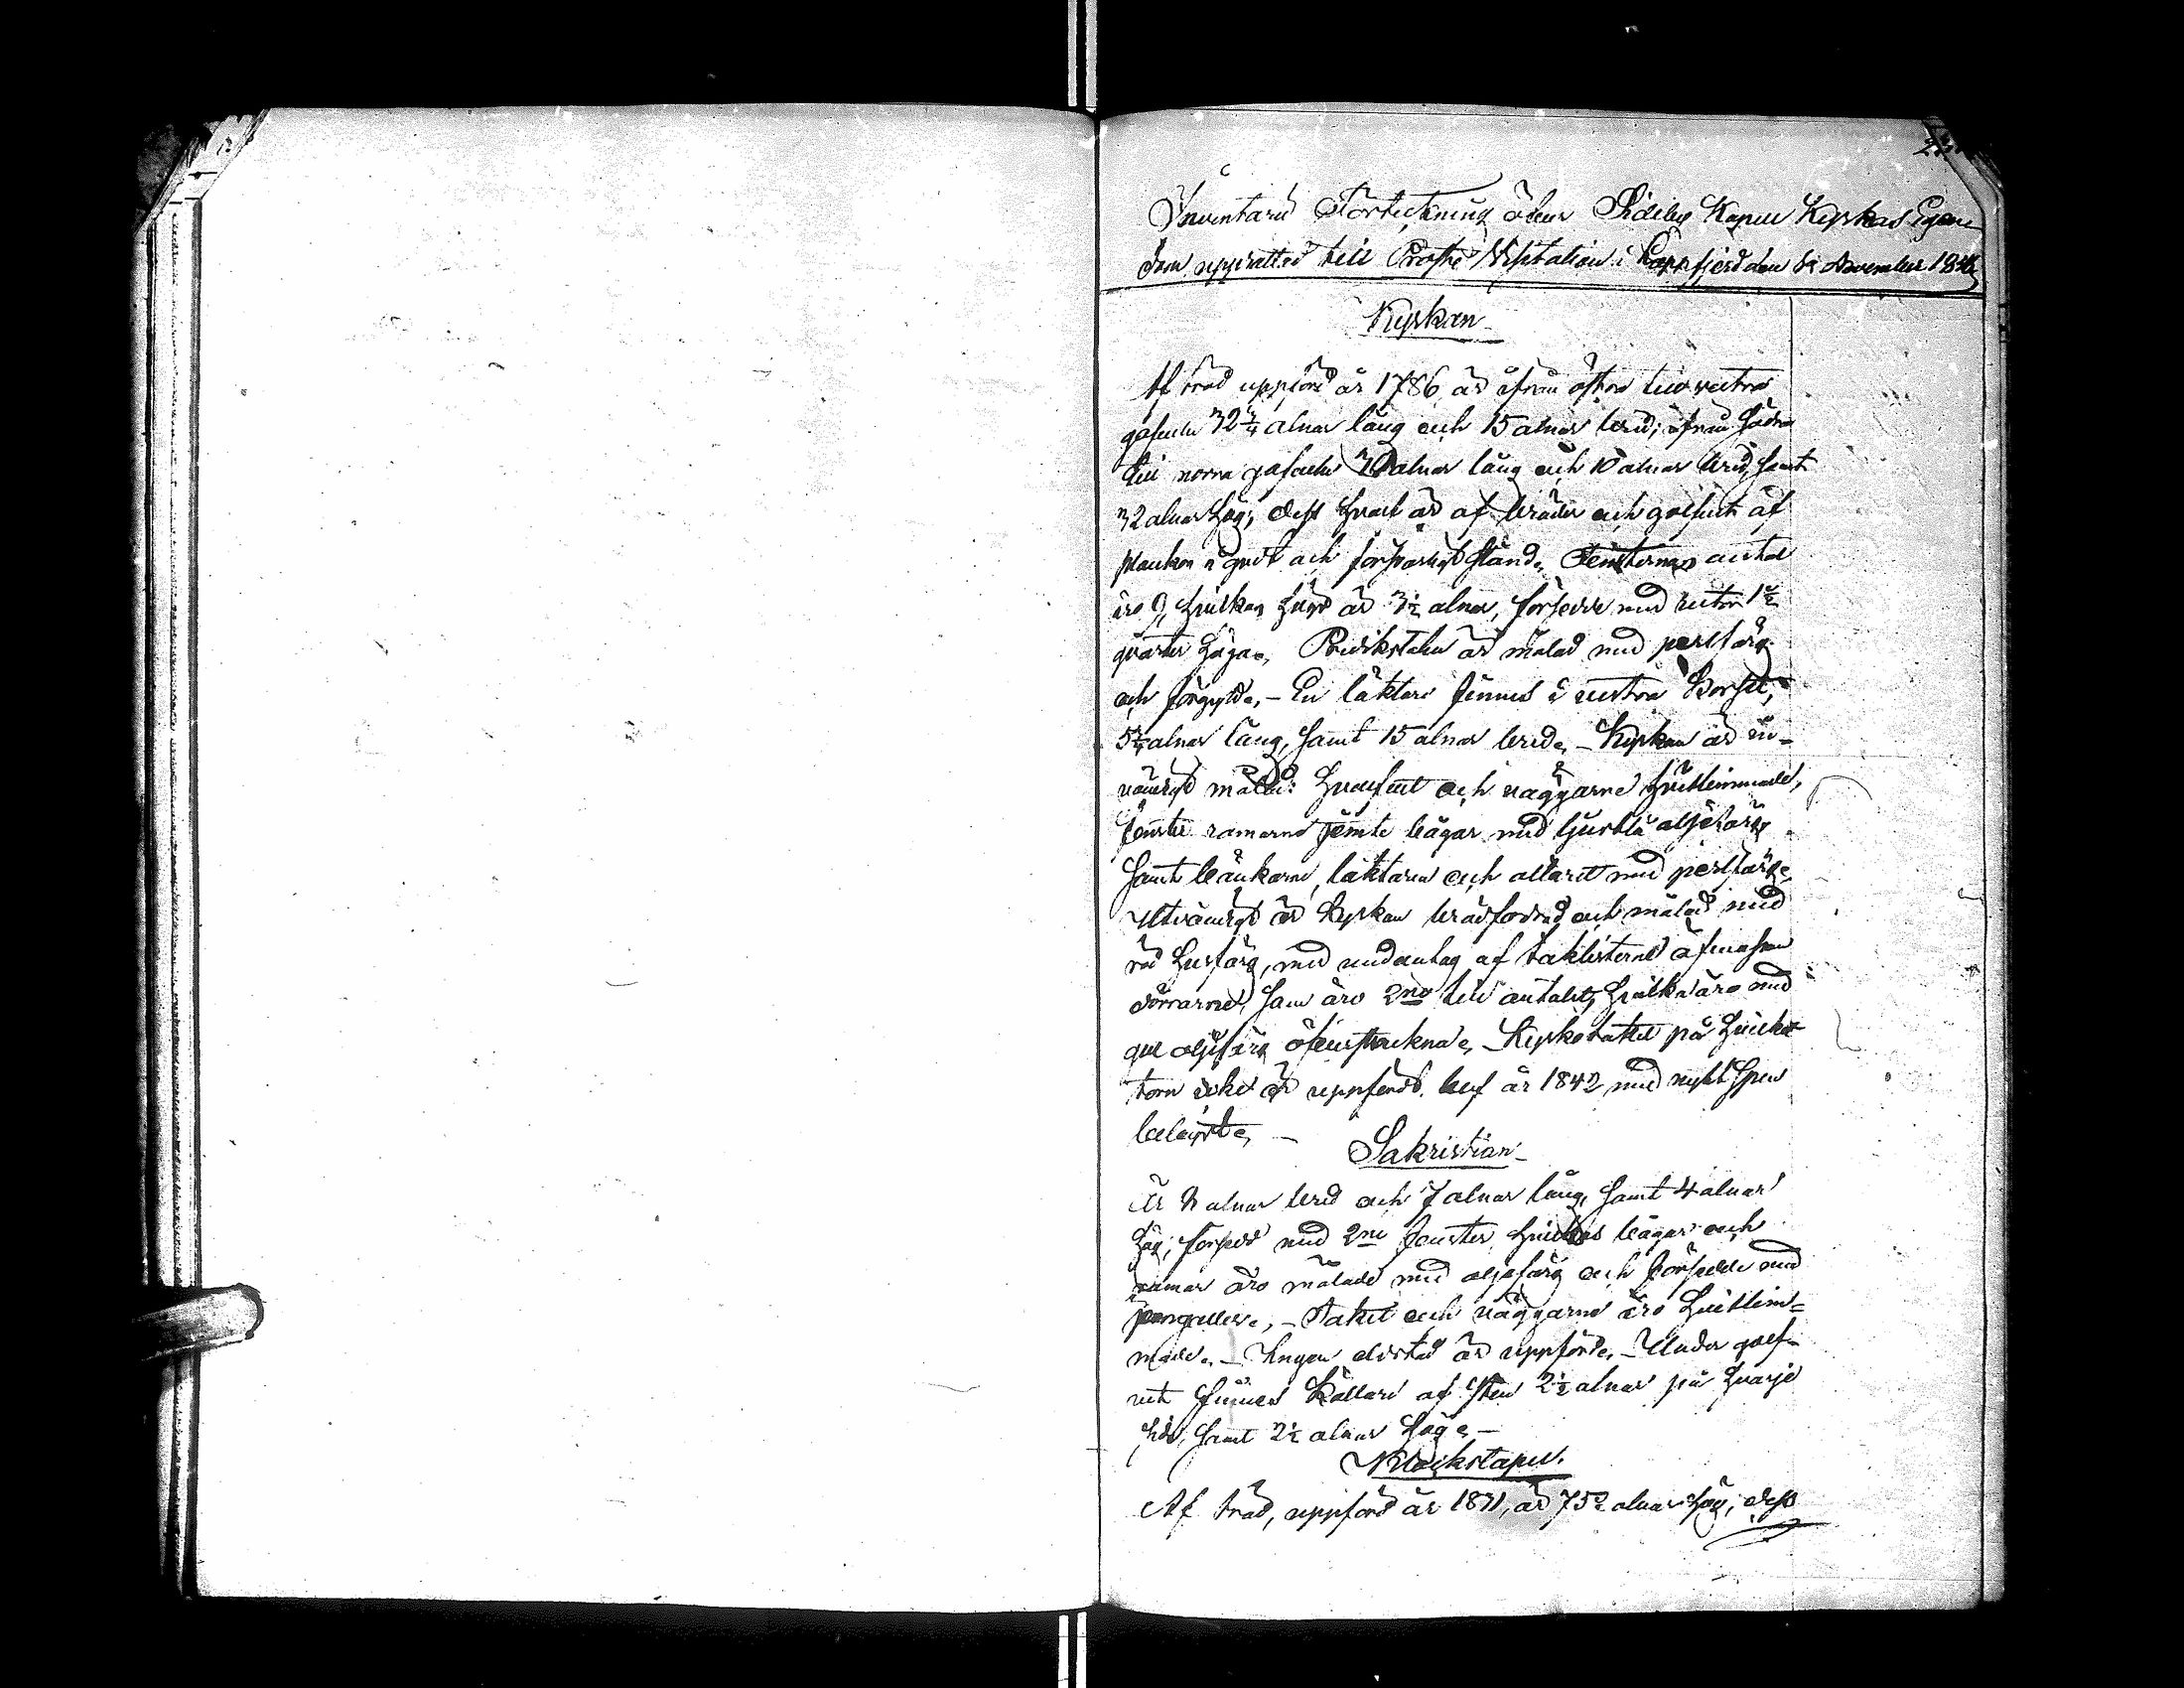 Inventarii Förteckning öfver Sideby Kapell Kyrkas Egen
dom upprättad till Proste Visitation i Lappfjerd den November
Kyrkan
Af träd uppförd år 1786, är ifrån östra till vestra
gafveln 32 3/4 alnar lång och 15 alnar bred; ifrån södra
till norra gafveln alnar lång och 10 alnar bred, samt
32 alnar hög; dess hvalf är af bräder och golfvet af
plankor i godt och försvarligt stånd. Fensternas antal
äro 9, hvilkas höjd är 3 1/2 alnar, försedde med rutor 1 1/2
qvarter höga. Predikstolen är målad med perlfärg
och förgyld. – En läktare finnes i vestra korset,
5 3/4 alnar lång, samt 15 alnar bred. – Kyrkan är in-
vändigt målad: hvalfvet och väggarne hvitlimmade,
fenster ramarne jemte bågar med ljusblå oljefärg
samt bänkarne, läktaren och altaret med perlfärg.
Utvändigt är Kyrkan brädfodrad och målad med
röd husfärg, med undantag af taklisterne äfvensom
dörrarne, som äro 2ne till antalet, hvilka äro med
gul oljefärg öfverstrukna. – Kyrkotaket på hvilket
torn icke är uppfördt, blef år 1842 med nytt spån
belagdt. –
Sakristian
Är alnar bred och 7 alnar lång, samt 4 alnar
hög; försedd med 2ne fenster, hvilkas bågar och
ramar äro målade med oljefärg och försedde med
jerngaller. – Taket och väggarne äro hvitlim=
made. – Ingen eldstad är uppförd. – Under golf-
vet finnes källare af sten 2 1/2 alnar på hvarje
sida, samt 2 1/2 alnar hög. –
Klockstapel.
Af träd, uppförd år 1831, är alnar hög; dess